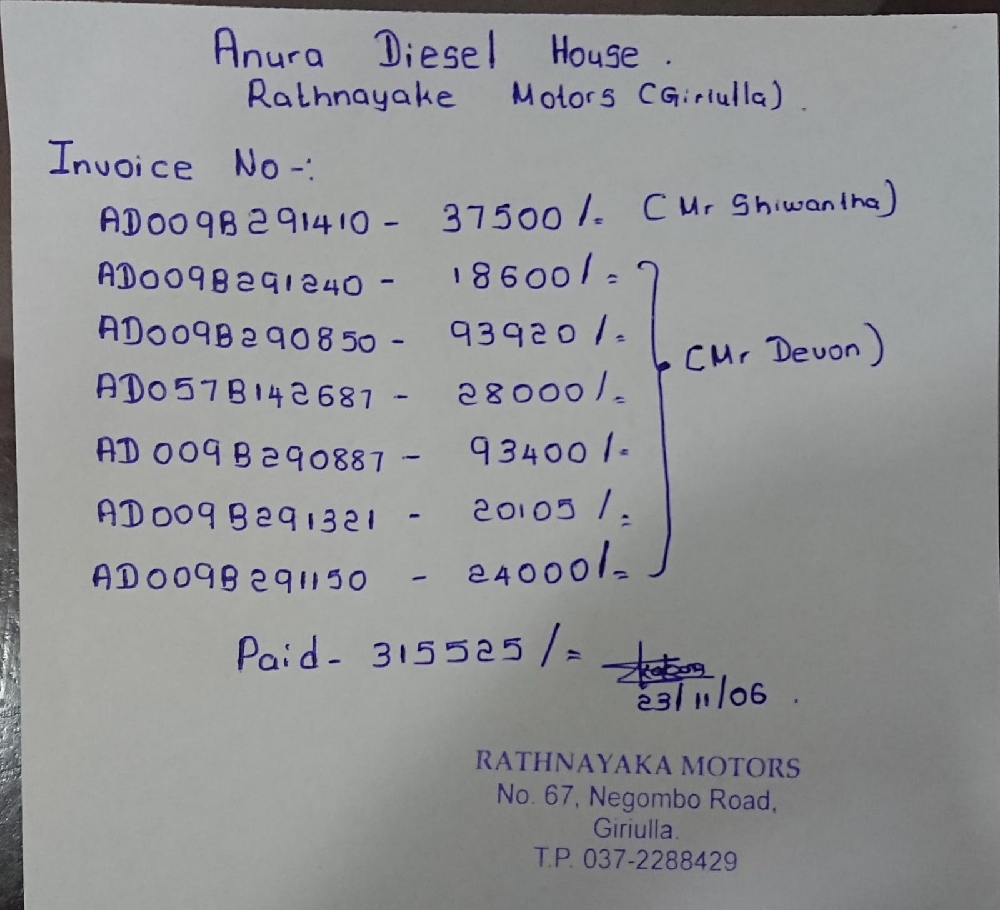 Anura Diesel House.
Rathnayake Motors (Giriulla).
Invoice No -:
AD009B291410 - 37500/= (Mr Shiwantha)
AD009B291240 - 18600/=
AD009B290850 - 93920/=
(Mr Devon)
AD057B142687 - 28000/=
AD009B290887 - 93400/=
AD009B291321 - 20105/=
AD009B291150 - 24000/=
Paid - 315525/=
23/11/06.
RATHNAYAKA MOTORS
No. 67, Negombo Road,
Giriulla.
T.P. 037-2288429